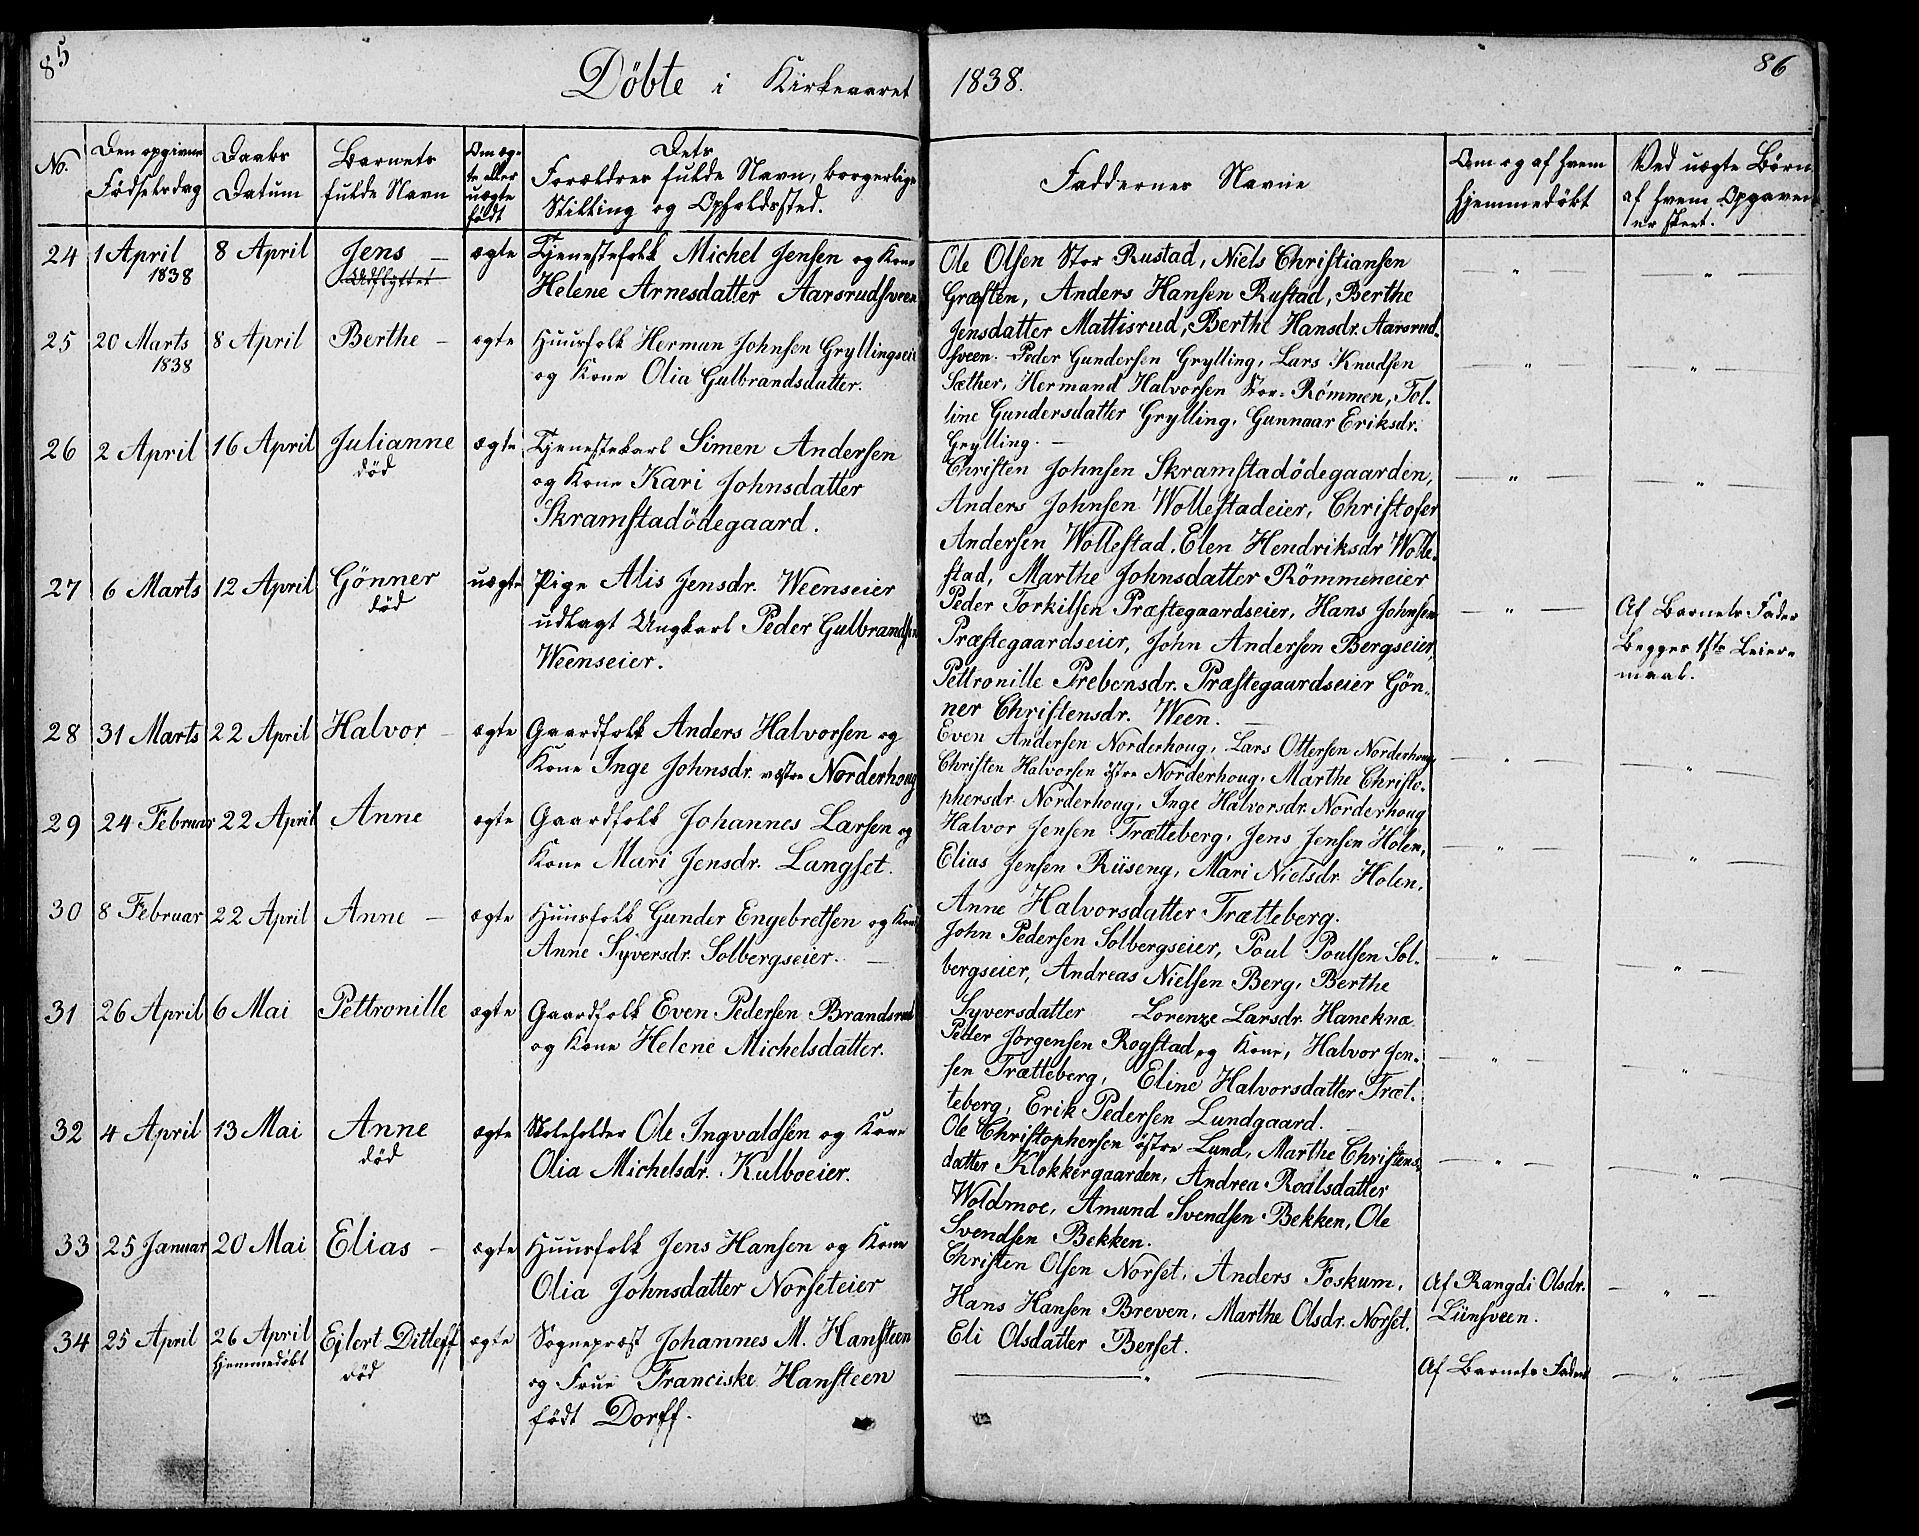 85
Döbte i Kirkeaaret
No.
Den opgivne
Fødselsdag
Daabs
Datum
Barnets
fulde Navn
Om æg-
te eller
uægte
født
Dets
Forældres fulde Navn, borgerlige
Stilling og Opholdssted.
24 1 April 8 April Jens – ægte Tjenestefolk Michel Jensen og Kone
1838 Udflyttet Helene Arnesdatter Aarsrudsveen
25 20 Marts 8 April Berthe – ægte Huusfolk Herman Johnsen Gryllingseie
1838 og Kone Olia Gulbrandsdatter.
26 2 April 16 April Julianne ægte Tjenestekarl Simen Andersen
død og Kone Kari Johnsdatter
Skramstadödegaard.
27 6 Marts 12 April Gönner uægte Pige Alis Jensdr. Weenseier
død udlagt Ungkarl Peder Gulbrandsen
Weenseier.
28 31 Marts 22 April Halvor – ægte Gaardfolk Anders Halvorsen og
Kone Inge Johnsdr. vestre Norderhoug
29 24 Februar 22 April Anne ægte Gaardfolk Johannes Larsen og
Kone Mari Jensdr. Langset.
30 8 Februar 22 April Anne – ægte Huusfolk Gunder Engebretsen og Kone
Anne Syversdr. Solbergseier. –
31 26 April 6 Mai Pettronille ægte Gaardfolk Even Pedersen Brandsrud
og Kone Helene Michelsdatter.
32 4 April 13 Mai Anne ægte Skoleholder Ole Ingvaldsen og Kone
død Olia Michelsdr. Kulboeier.
33 25 Januar 20 Mai Elias – ægte Huusfolk Jens Hansen og Kone
Olia Johnsdatter Norseteier
34 25 April 26 April Ejlert Ditleff ægte Sognepræst Johannes M. Hansteen
hjemmedøbt død og Frue Franciske Hansteen
født Dorff.
1838.
86
Faddernes Navne
Om og af hvem
hjemmedøbt
Ved uægte Børn
af hvem Opgaven
er skeet.
Ole Olsen Stor Rustad, Niels Christiansen — " — — " —
Græsten, Anders Hansen Rustad, Berthe
Jensdatter Mattisrud, Berthe Hansdr. Aarsrud-
sveen. – Peder Gundersen Grylling, Lars Knudsen — " — — " —
Sæther, Hermand Halvorsen Stor-Römmen, Tol-
line Gundersdatter Grylling, Gunnaar Eriksdr.
Grylling. –
Christen Johnsen Skramstadödegaarden, — " — — " —
Anders Johnsen Wollestadeier, Christofer
Andersen Wollestad, Elen Hendriksdr Wolle-
stad, Marthe Johnsdatter Römmeneier
Peder Torkilsen Præstegaardseier, Hans Johnsen — " — Af Barnets Fader
Præstegaardseier, John Andersen Bergseier, Begges 1ste Leier-
Pettronille Prebensdr. Præstegaardseier Gön- maal.
ner Christensdr. Ween. –
Even Andersen Norderhoug, Lars Ottersen Norderhoug, — " — — " —
Christen Halvorsen östre Norderhoug, Marthe Christo-
phersdr Norderhoug, Inge Halvorsdr. Norderhoug
Halvor Jensen Trætteberg, Jens Jensen Holen, — " — — " —
Elias Jensen Rüseng, Mari Nielsdr. Holen,
Anne Halvorsdatter Trætteberg.
John Pedersen Solbergseier, Poul Poulsen Sol- — " — — " —
bergseier, Andreas Nielsen Berg, Berthe
Syversdatter Lorenze Larsdr. Hanekna
Peder Jörgensen Rogstad og Kone, Halvor Jen- — " — — " —
sen Trætteberg, Eline Halvorsdatter Træt-
teberg, Erik Pedersen Lundgaard. –
Ole Christophersen östre Lund, Marthe Christens- — " — — " —
datter Klokkergaarden, Andrea Roalsdatter
Woldmoe, Amund Svendsen Bekken, Ole
Svendsen Bekken.
Christen Olsen Norset, Anders Foskum, Af Rangdi Olsdr. — " —
Hans Hansen Breven, Marthe Olsdr. Norset, Lünsveen.
Eli Olsdatter Berset.
— " — Af Barnets Fader — " —